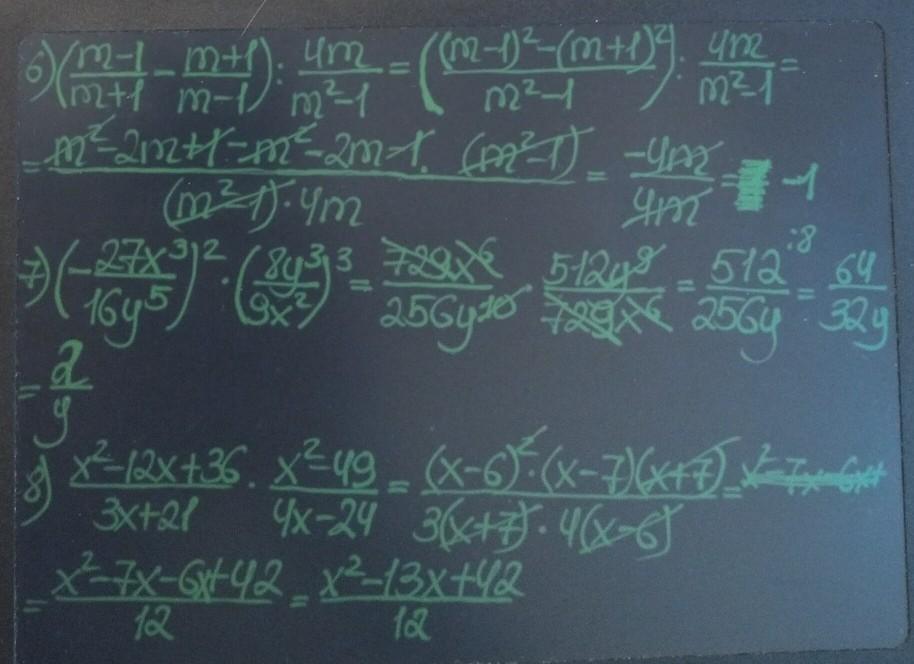 6) (m-1/m+1 - m+1/m-1) : 4m/m²-1 = ((m-1)²-(m+1)²/m²-1) : 4m/m²-1 =
= m²-2m+1-m²-2m-1 · (m²-1)/(m²-1)·4m = -4m/4m = -1
7) (-27x³/16y⁵)² · (8y³/9x²)³ = 729x⁶/256y¹⁰ · 512y⁹/729x⁶ = 512/256y :8 = 64/32y
= 2/y
8) x²-12x+36/3x+21 · x²-49/4x-24 = (x-6)²·(x-7)(x+7)/3(x+7)·4(x-6) = x²-7x-6x+
= x²-7x-6x+42/12 = x²-13x+42/12